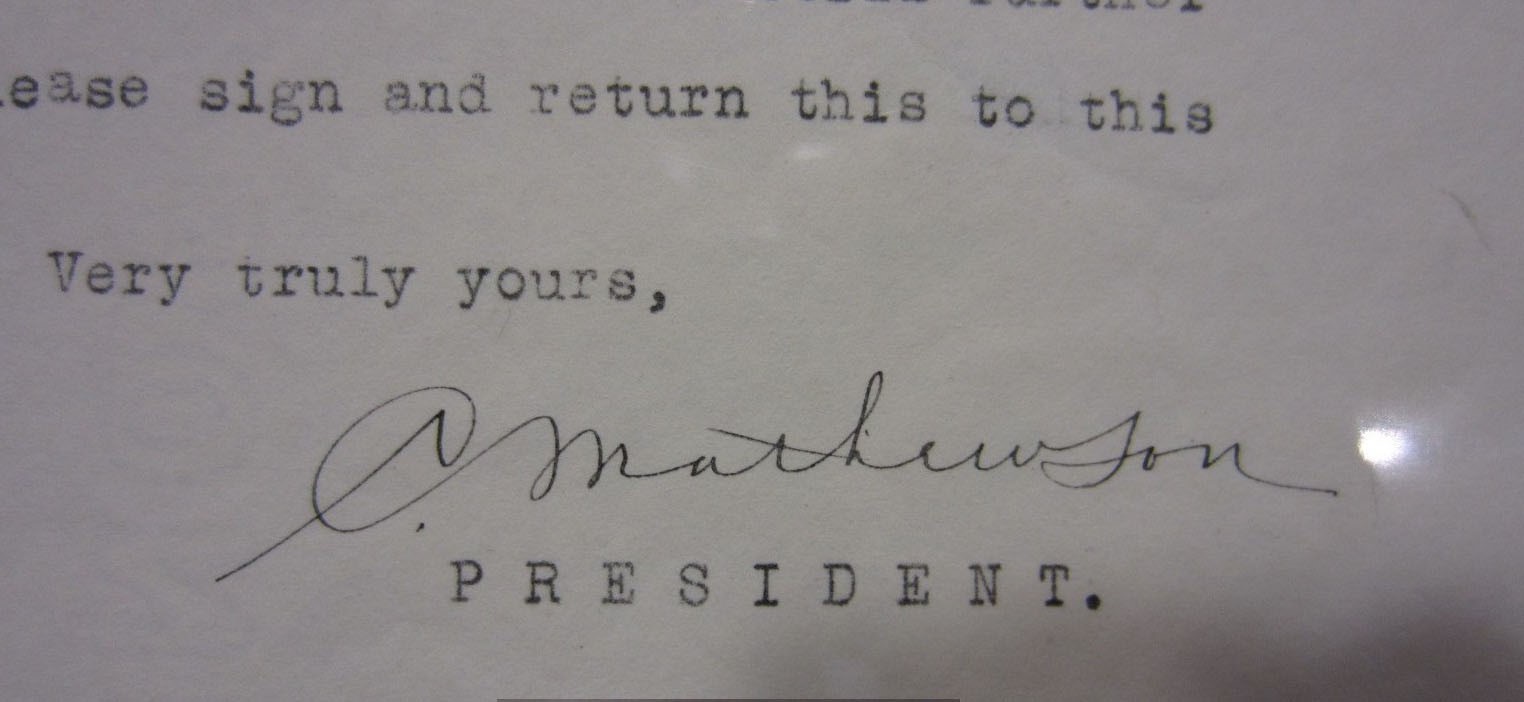 further
lease sign and return this to this
Very truly yours,
C. Mathewson
PRESIDENT.